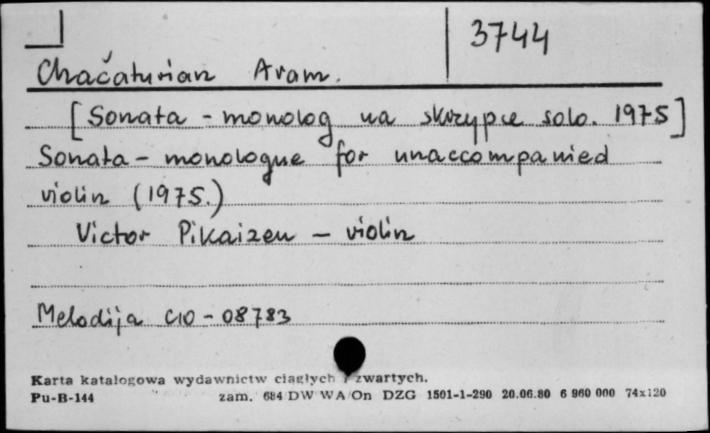 3744
Chačaturian Aram.
[Sonata - monolog na skrzypce solo. 1975]
Sonata - monologue for unaccompanied
violin (1975.)
Victor Pikaizen - violin
Melodija C10 - 08783
Karta katalogowa wydawnictw ciągłych i zwartych.
Pu-B-144 zam. 684 DW WA/On DZG 1501-1-290 20.06.80 6 960 000 74x120